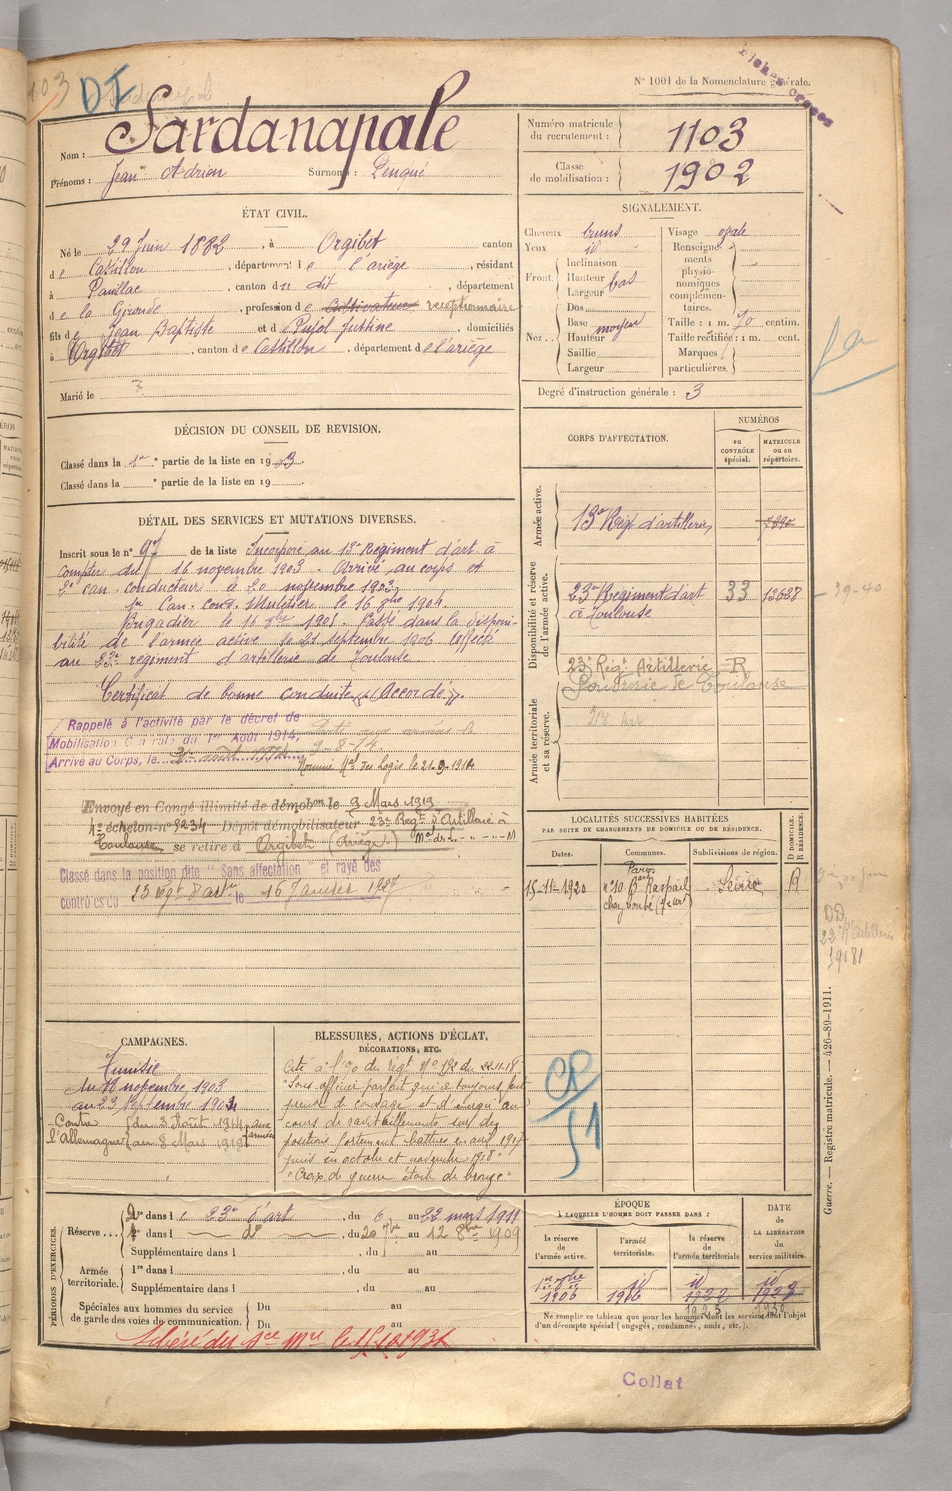 103
DI
N° 1001 de la Nomenclature générale.
Fiches croces
Nom : Sardanapale
Prénoms : Jean Adrien Surnoms : Penqué
Numéro matricule du recrutement : 1103
Classe de mobilisation : 1902
ÉTAT CIVIL.
Né le 29 Juin 1882, à Orgibet canton
de Castillon, département de l'ariège, résidant
à Pauillac, canton du dit, département
de la Gironde, profession de Cultivateur receptionnaire
fils de Jean Baptiste et de Pujol Justine, domiciliés
à Orgibet, canton de Castillon, département de l'ariège
Marié le
SIGNALEMENT.
Cheveux bruns
Yeux id
Front. Inclinaison
Hauteur bas
Largeur
Nez.. Dos
Base moyen
Hauteur
Saillie
Largeur
Visage ovale
Renseignements physionomiques complémentaires.
Taille : 1 m. 70 centim.
Taille rectifiée : 1 m. cent.
Marques particulières.
Degré d'instruction générale : 3
DÉCISION DU CONSEIL DE REVISION.
Classé dans la 1re partie de la liste en 1903.
Classé dans la e partie de la liste en 19
DÉTAIL DES SERVICES ET MUTATIONS DIVERSES.
Inscrit sous le n° 97 de la liste Incorporé au 13e Régiment d'art. à
compter du 16 novembre 1903. Arrivé au corps et
2e can. conducteur à 20 novembre 1903,
1er Can. cond. Muletier le 16 8bre 1904.
Brigadier le 16 8bre 1905. Passé dans la disponi-
bilité de l'armée active le 21 septembre 1906 Affecté
au 23e régiment d'artillerie de Toulouse
Certificat de bonne conduite « Accordé ».
Rappelé à l'activité par le décret de
Mobilisation Générale du 1er Août 1914,
Arrivé au Corps, le 3 août 1914
Parti aux armées le
9-8-14.
Nommé Mal des Logis le 21.9.1914
Envoyé en Congé illimité de démobon le 9 Mars 1919
4e échelon n° 8234 Dépôt démobilisateur 23e Regt d'Artillerie à
Toulouse se retire à Orgibet (Ariège)
Classé dans la position dite "Sans affectation" et rayé des
contrôles du 23 Rgt d'artie le 16 Janvier 1927
CORPS D'AFFECTATION.
NUMÉROS
au CONTRÔLE spécial.
MATRICULE ou au répertoire.
Armée active.
13e Régt d'artillerie, 7890
Disponibilité et réserve de l'armée active.
23e Régiment d'art 33 13637
à Toulouse
39-40
23e Régt Artillerie R
Poudrerie de Toulouse
Armée territoriale et sa réserve.
LOCALITÉS SUCCESSIVES HABITÉES
PAR SUITE DE CHANGEMENTS DE DOMICILE OU DE RÉSIDENCE.
Dates.
Communes.
Subdivisions de région.
D DOMICILE. R RÉSIDENCE.
15-11-1920 Paris n° 10 Bd Raspail Seine R
22 R. Artillerie
CAMPAGNES.
Tunisie
du 18 novembre 1903
au 23 Septembre 1904
Contre l'Allemagne du 3 Août 1914 au 8 Mars 1919 aux armées
BLESSURES, ACTIONS D'ÉCLAT,
DÉCORATIONS, ETC.
Cité à l'ordre du régt n° 192 du 22.11.18
"Sous officier parfait qui a toujours fait
preuve de courage et d'énergie au
cours de ravitaillements sur des
positions fortement battues en avril 1917
puis en octobre et novembre 1918"
"Croix de guerre étoile de bronze"
CP
51
PÉRIODES D'EXERCICES.
Réserve... 1re dans le 23e d'art, du 6 au 22 mars 1911
2e dans l do, du 20 7bre au 12 8bre 1909
Supplémentaire dans l , du au
Armée territoriale. 1re dans l , du au
Supplémentaire dans l , du au
Spéciales aux hommes du service de garde des voies de communication. Du au
Du au
Libéré du Sce Mre le 15.10.1931
ÉPOQUE
À LAQUELLE L'HOMME DOIT PASSER DANS :
la réserve de l'armée active.
l'armée territoriale.
la réserve de l'armée territoriale
DATE DE LA LIBÉRATION du service militaire.
1er 9bre 1906
id 1916
id 1922
1923
id 1928
1930
Ne remplir ce tableau que pour les hommes dont les services font l'objet
d'un décompte spécial (engagés, condamnés, omis, etc.).
Guerre. — Registre matricule. — 426-89-1911.
Collat